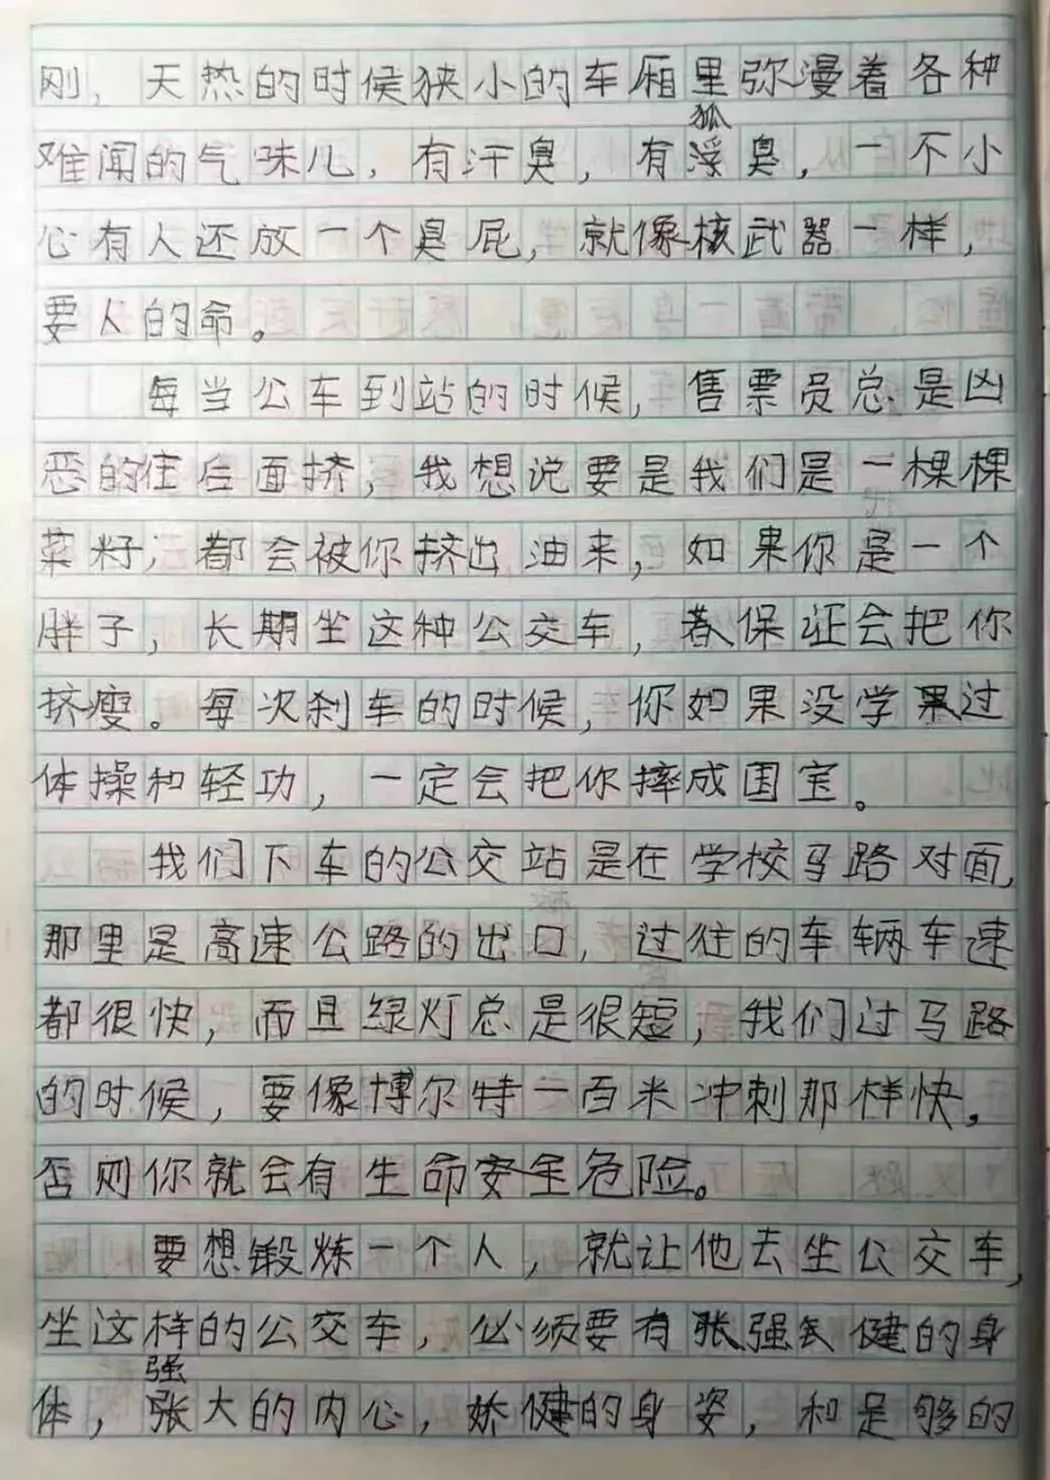 刚，天热的时候狭小的车厢里弥漫着各种
狐
难闻的气味儿，有汗臭，有浮臭，一不小
心有人还放一个臭屁，就像核武器一样，
要人的命。
每当公车到站的时候，售票员总是凶
恶的往后面挤，我想说要是我们是一棵棵
菜籽，都会被你挤出油来，如果你是一个
胖子，长期坐这种公交车，保证会把你
挤瘦。每次刹车的时候，你如果没学过
体操和轻功，一定会把你摔成国宝。
我们下车的公交站是在学校马路对面，
那里是高速公路的出口，过往的车辆车速
都很快，而且绿灯总是很短，我们过马路
的时候，要像博尔特一百米冲刺那样快。
否则你就会有生命安全危险。
要想锻炼一个人，就让他去坐公交车，
坐这样的公交车，必须要有强健的身
强
体，张大的内心，娇健的身姿，和足够的